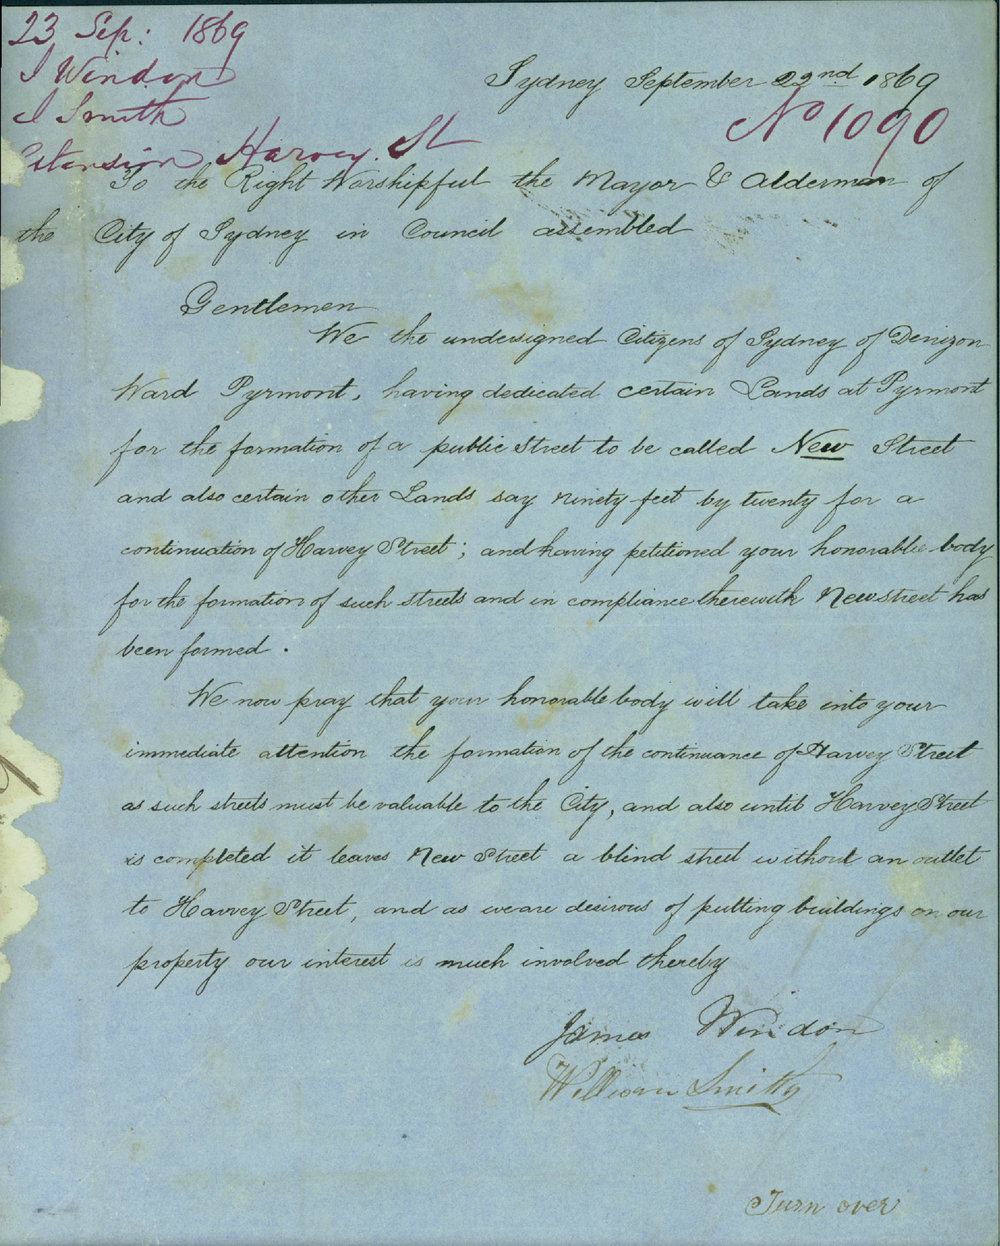 23 Sep: 1869
J Windon
J Smith
Extension Harvey St
Sydney September 22nd 1869
No 1090
To the Right Worshipful the Mayor & Alderman of
the City of Sydney in Council assembled
Gentlemen
We the undersigned Citizens of Sydney of Denizon
Ward Pyrmont, having dedicated certain Lands at Pyrmont
for the formation of a public Street to be called New Street
and also certain other Lands say ninety feet by twenty for a
continuation of Harvey Street; and having petitioned your honorable body
for the formation of such streets and in compliance therewith New street has
been formed.
We now pray that your honorable body will take into your
immediate attention the formation of the continuance of Harvey Street
as such streets must be valuable to the City, and also until Harvey Street
is completed it leaves New Street a blind street without an outlet
to Harvey Street, and as we are desirous of putting buildings on our
property our interest is much involved thereby
James Windon
William Smith
Turn over